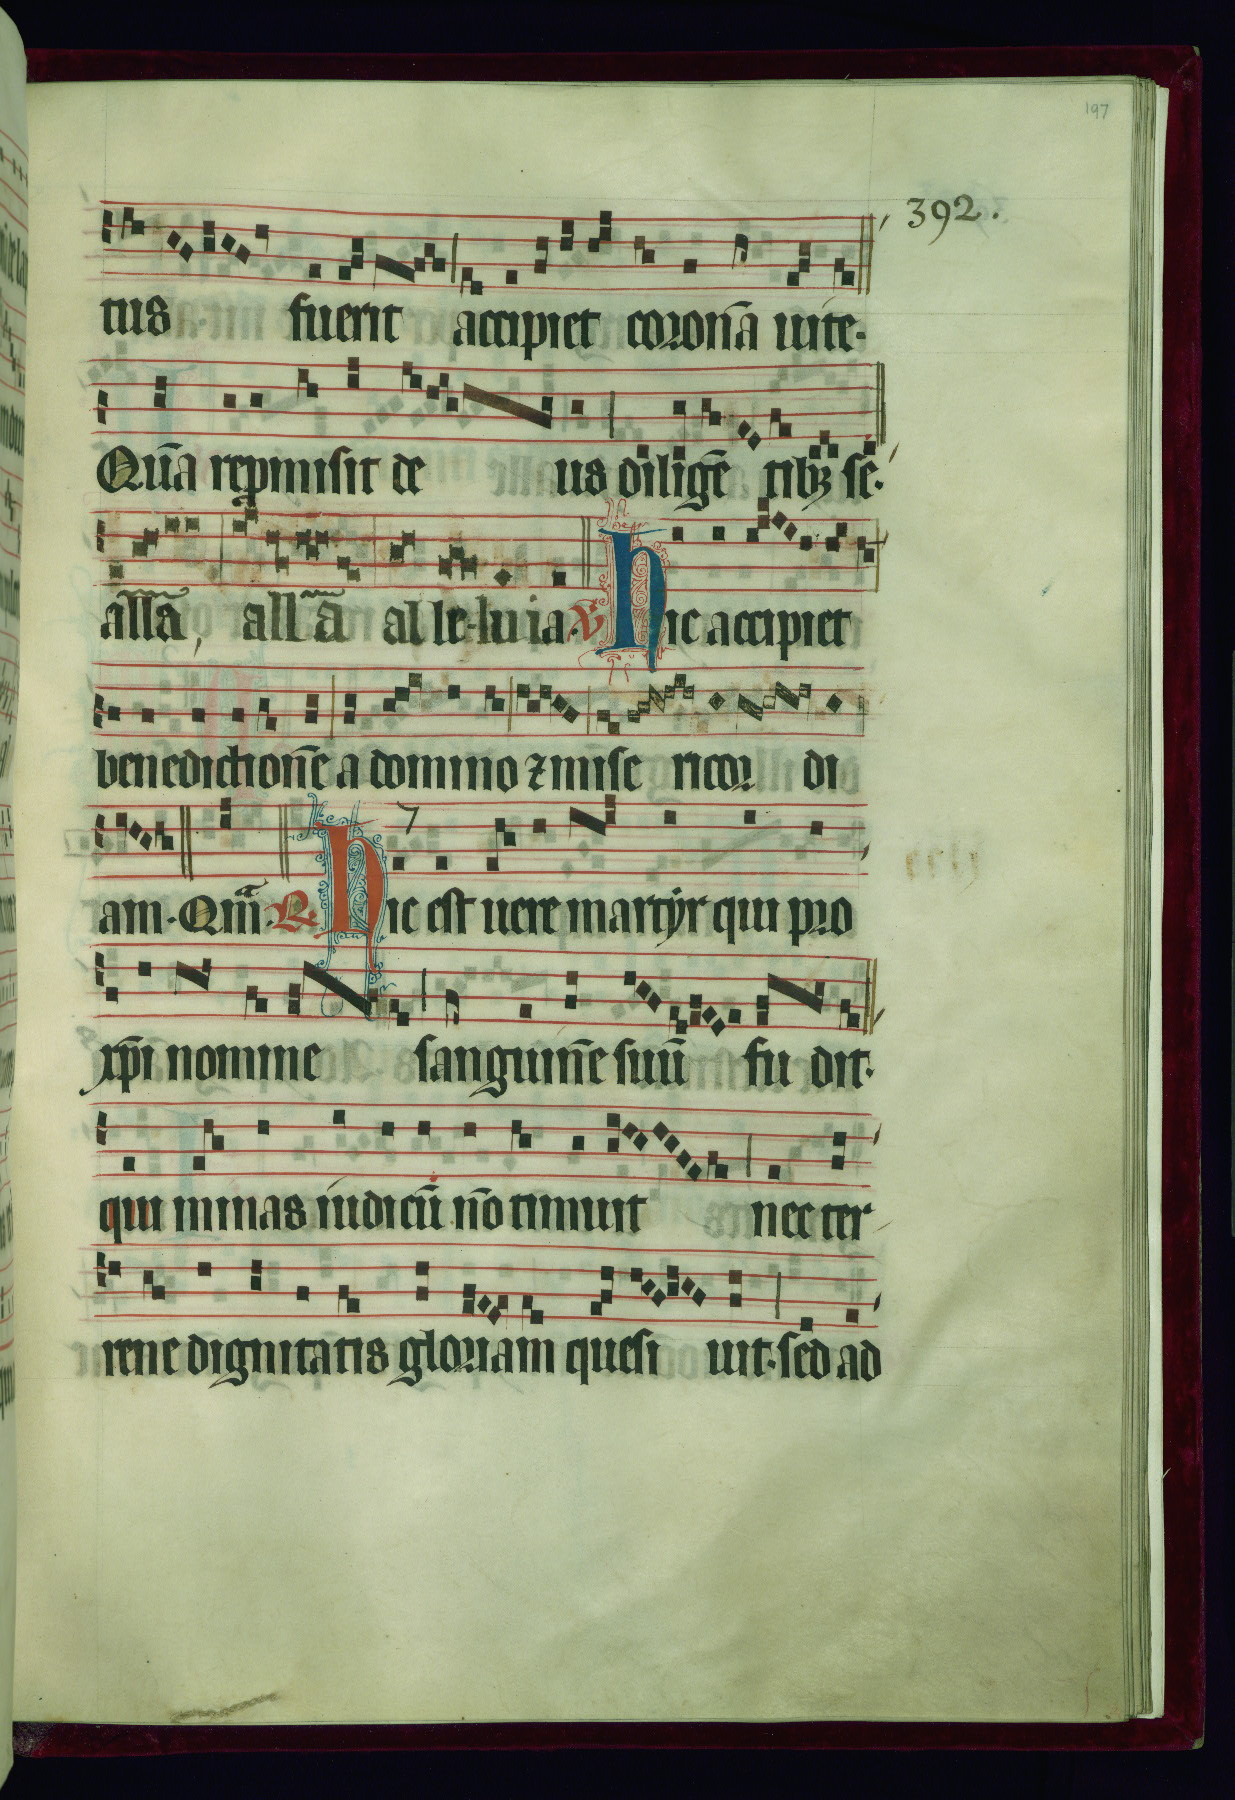 197
392.
tus fuerit accipiet coronā uite.
Quā repmisit de us diligē tibꝫ se.
allā, allā alleluia. ℣ hic accipiet
benedictionē a domino ⁊ mise ricor di
am. Qm̄. ℟ Hic est uere martyr qui pro
xp̄i nomine sanguinē suū fu dit.
qui minas iudicū nō timuit nec ter
rene dignitatis gloriam quesi uit. sed ad